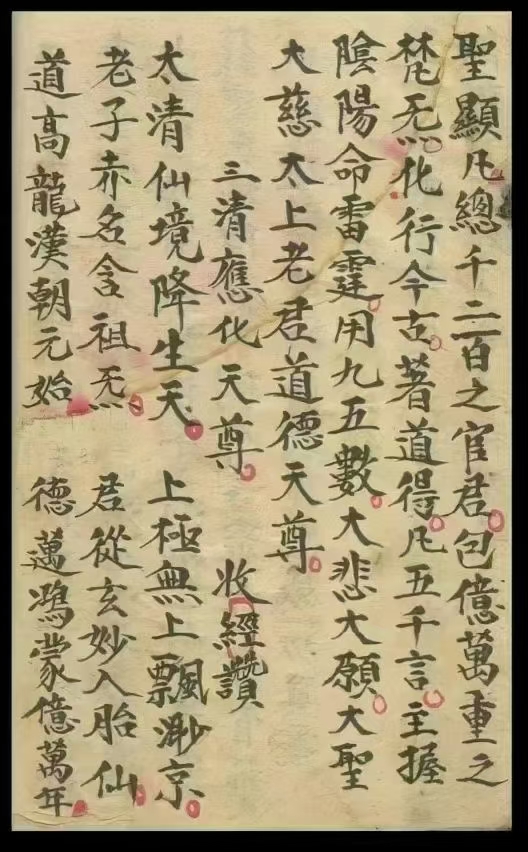 聖顯凡總千二百之官君。包億萬重之
梵炁化行今古。著道得凡五千言。主握
陰陽命雷霆。用九五數。大悲大願。大聖
大慈太上老君道德天尊。
三清應化天尊。 收經讚
太清仙境降生天。 上極無上飄渺京。
老子赤名含祖炁。 君從玄妙入胎仙。
道高龍漢朝元始。 德邁鴻蒙億萬年。